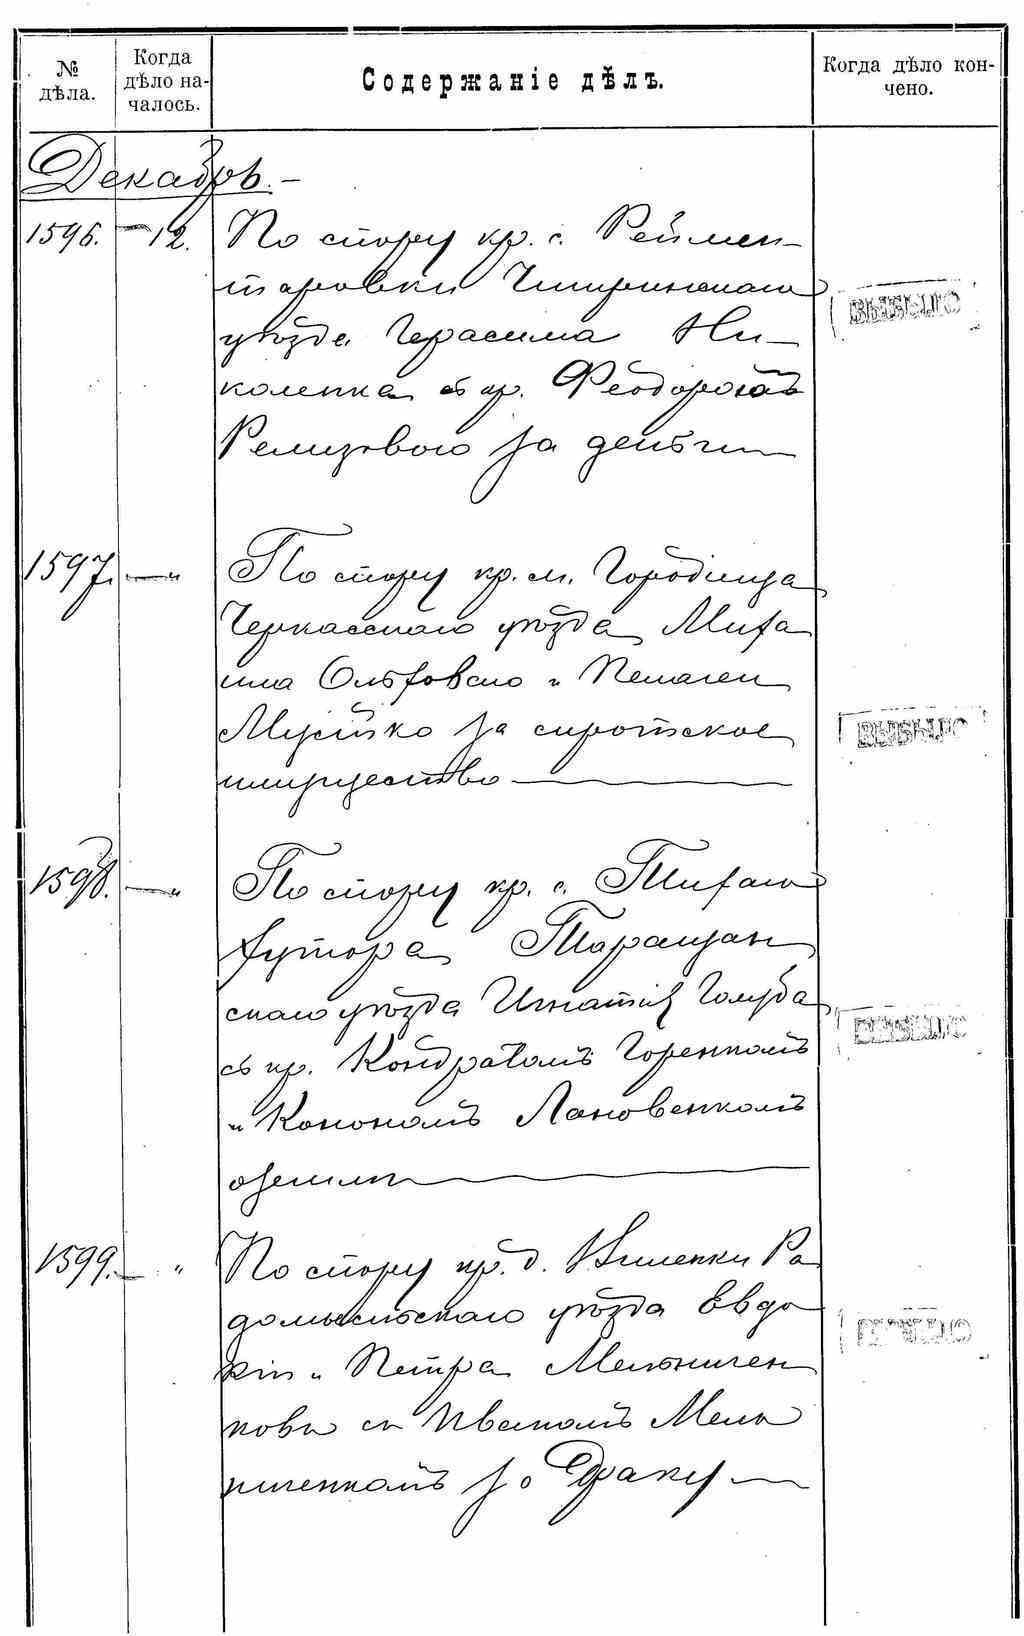 № дѣла.
Когда дѣло началось.
Содержаніе дѣлъ.
Когда дѣло кончено.
Декабрь.
1596. — 12. По спору кр. с. Реймен-
таровки Чигиринскаго
уѣзда Герасима Ни-
коленка съ кр.
за деньги
ВЫБЫЛО
1597. — " По спору кр. м. Городища
Черкасскаго уѣзда Миха
ила и Пелагеи
за сиротское
имущество
ВЫБЫЛО
1598. — " По спору кр. с. Тихаго
хутора Таращан
скаго уѣзда Игнатія Голуба
съ кр. Кондратомъ Горенкомъ
и Конономъ Лановенкомъ
о землѣ
ВЫБЫЛО
1599. — " По спору кр. д. Ра
домысльскаго уѣзда Евдо
кіи и Петра Мельничен
ковы съ Иваномъ Мель
ниченкомъ за драку